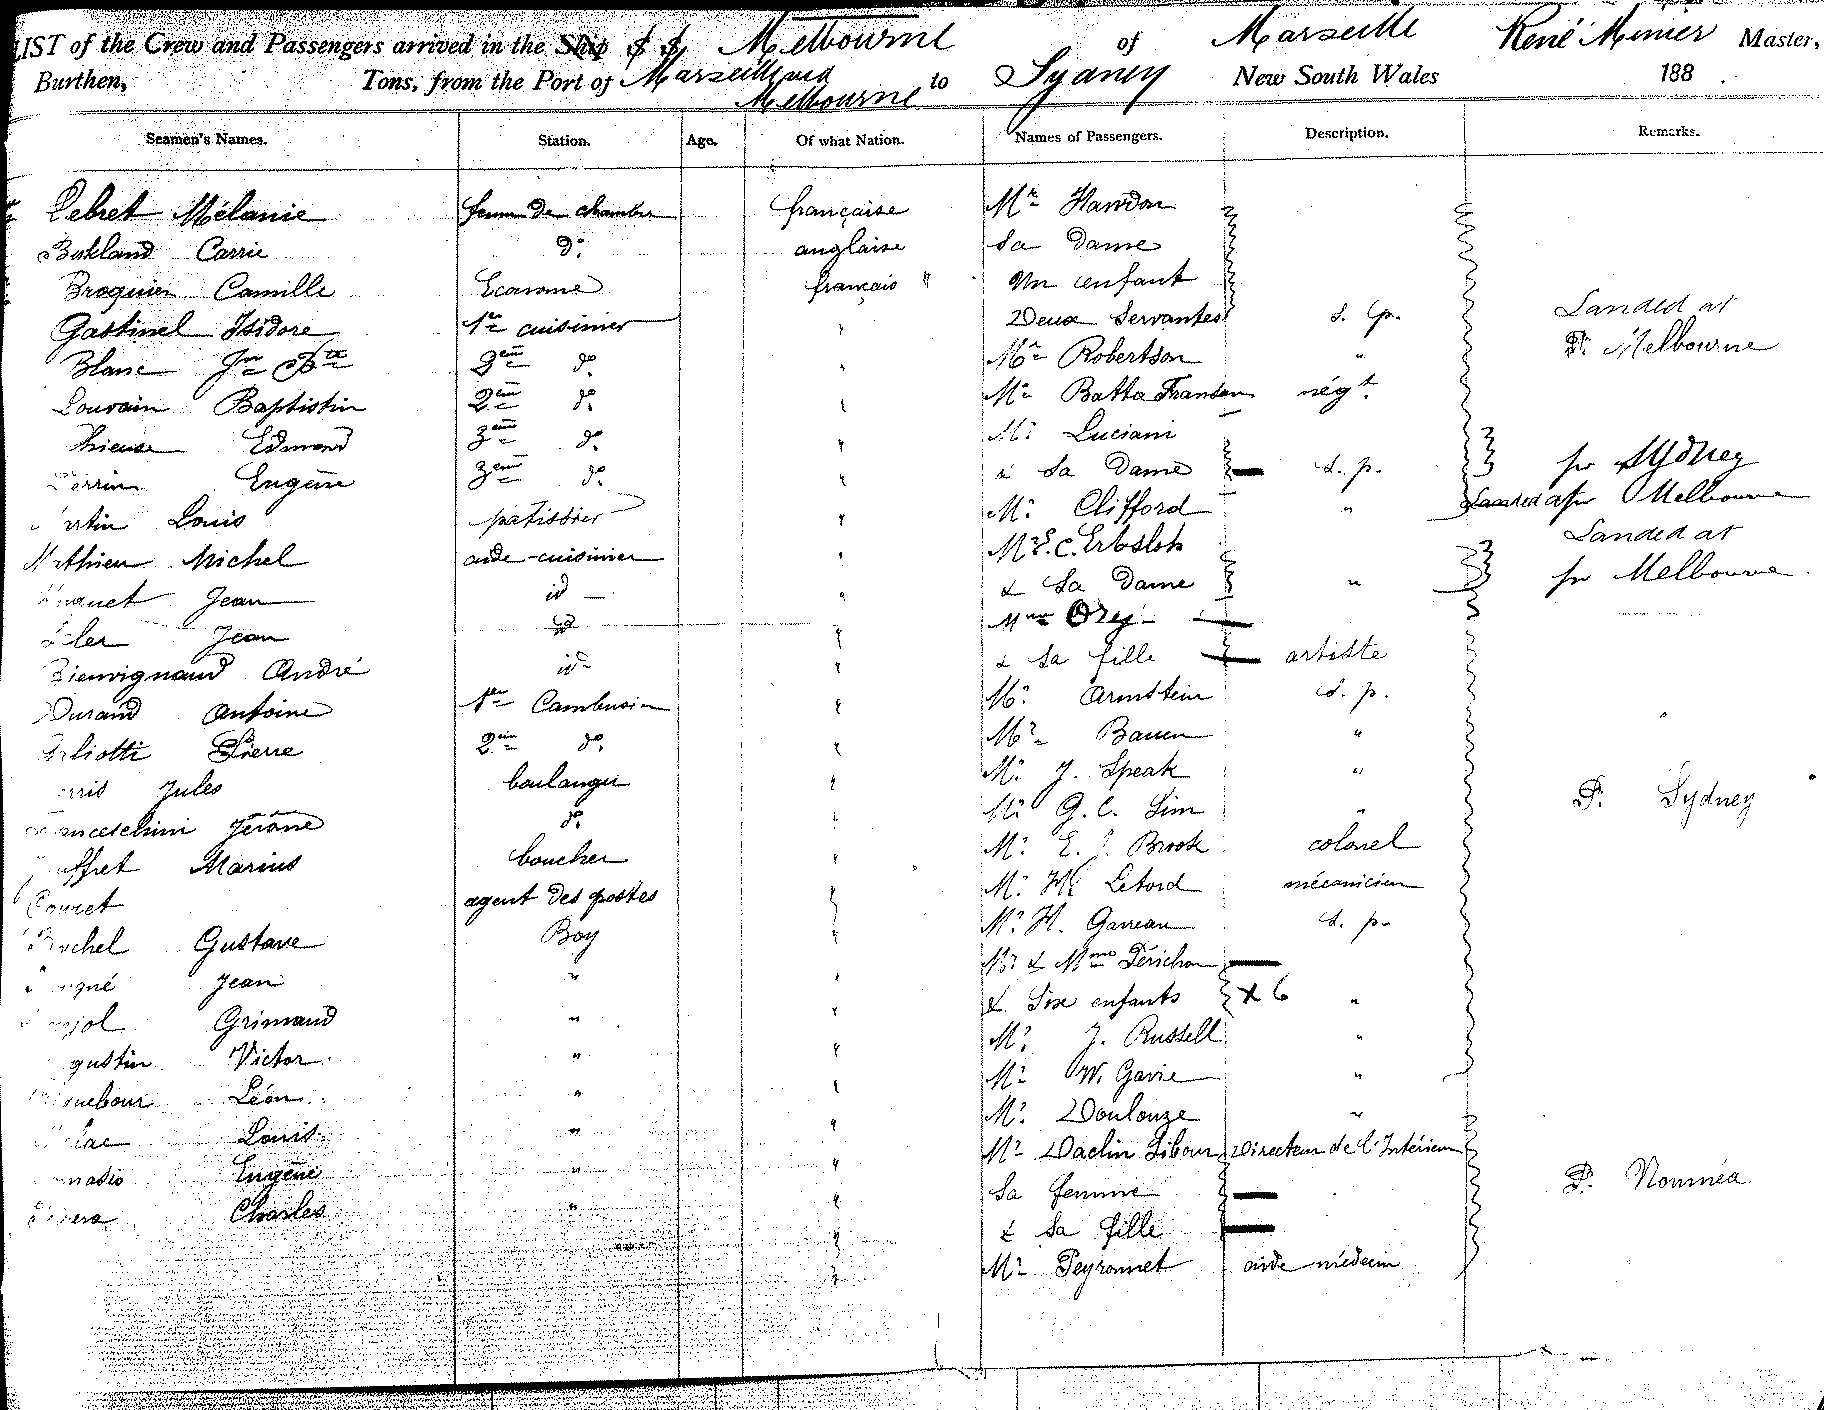 LIST of the Crew and Passengers arrived in the Ship S S Melbourne of Marseille René Minier Master,
Burthen, Tons, from the Port of Marseille and Melbourne to Sydney New South Wales 188 .
Seamen's Names. Station. Age. Of what Nation. Names of Passengers. Description. Remarks.
Lebret Mélanie femme de chambre française Mr Hawdon
Carrie do anglaise Sa Dame
Broquier Camille Econome français " Un enfant
Gastinel Isidore 1er cuisinier " Deux Servantes s. p. Landed at
Blanc Jn Bte 2eme do " Mr Robertson " Pr Melbourne
Louvain Baptistin 2eme do " Mr Batta Fransen négt
Edmond 3eme do " Mr Luciani
Perrin Eugène 3eme do " & Sa Dame s. p. pr Sydney
Louis patissier " Mr Clifford " Landed at pr Melbourne
Mathieu Michel aide-cuisinier " Mr E. C. Erbsloh Landed at
Jean id " & Sa Dame " pr Melbourne
Jean id " Mme
André id " & Sa fille artiste
Durand Antoine 1er Cambusier " Mr Armstein s. p.
Pierre 2eme do " Mr Bauen "
Jules boulanger " Mr J. Speak "
Jérôme do " Mr G. C. Sim " Pr Sydney
Marius boucher " Mr E. Brook colonel
Couret agent des postes " Mr H. Letord mécanicien
Gustave Boy " Mr H. Garreau s. p.
Jean " " Mr & Mme Périchon
Grimaud " " & Six enfants X 6 "
Victor " " Mr J. Russell "
Léon " " Mr W. Gavie "
Louis " " Mr Doulouze "
Eugène " " Mr Daclin Sibour Directeur de l'Intérieur
Charles " " Sa femme Pr Nouméa
" & Sa fille
" Mr Peyronnet aide médecin